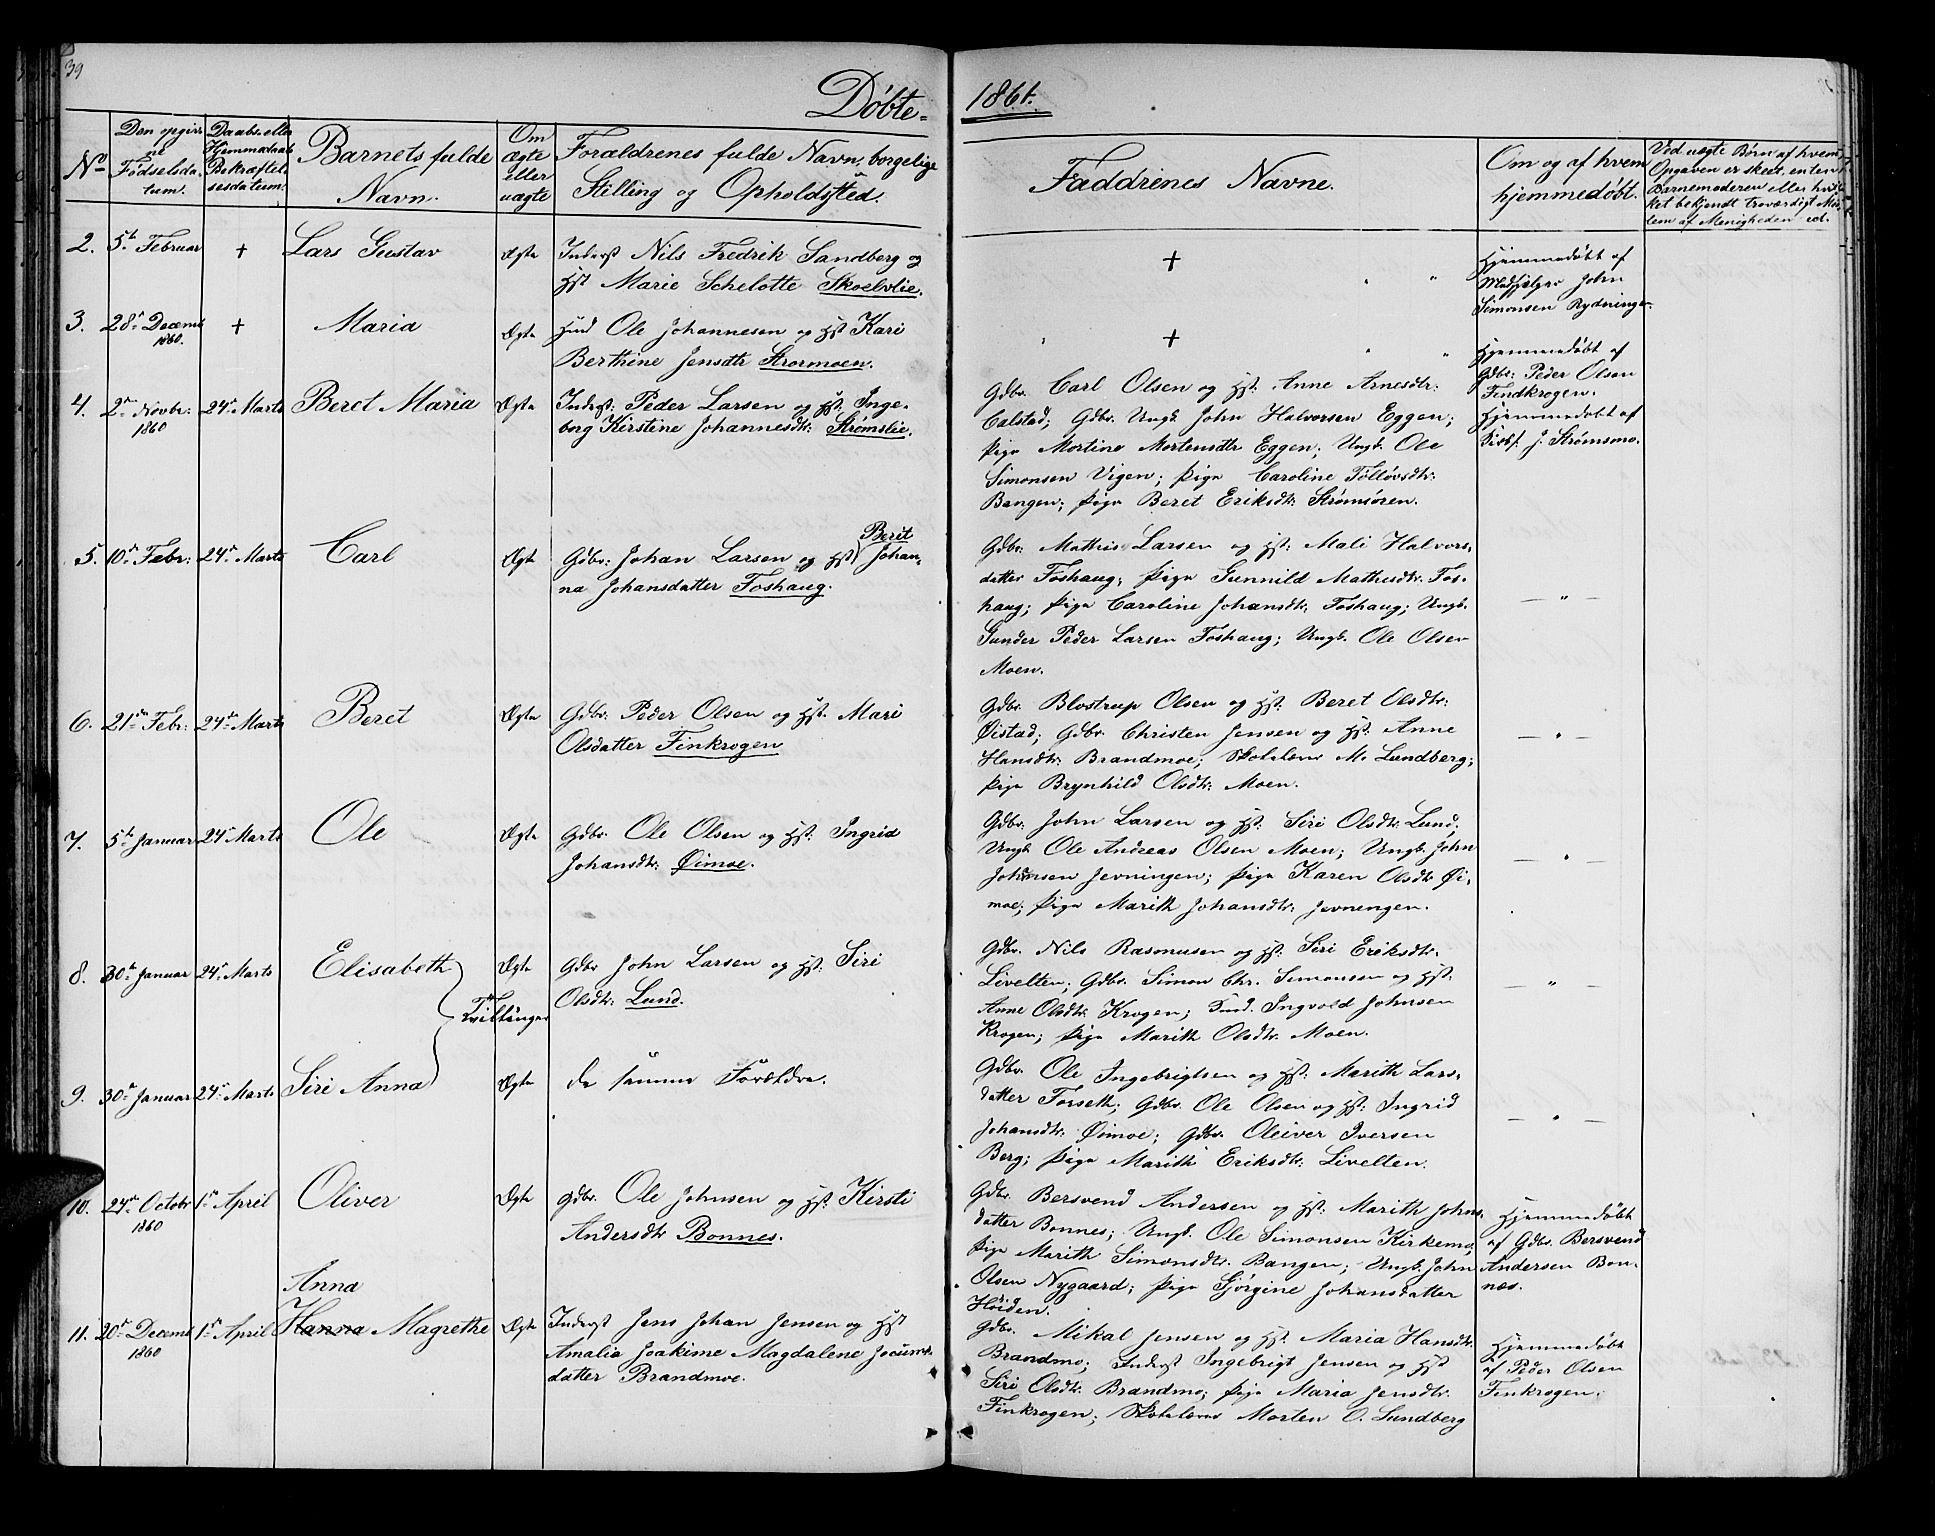 39
Døbte 1861.
No
Den opgivne Fødselsdatum.
Daabs- eller Hjemmedaabs Bekræftelsesdatum.
Barnets fulde Navn.
Om ægte eller uægte
Forældrenes fulde Navn, borgelige Stilling og Opholdssted.
Faddrenes Navne.
Om og af hvem hjemmedøbt.
Ved uægte Børn af hvem Opgaven er skeet, enten Barnemoderen eller hvilket bekjendt troværdigt Medlem af Menigheden ed.
2. 5te Februar + Lars Gustav Ægte
Inderst Nils Fredrik Sandberg og
Hst Marie Schelotte Skoelvlie.
+
Hjemmedøbt af
Medhjelper John
Simonsen Rydninge
3. 28de Decemb 1860. + Maria Ægte
Huusmd Ole Johannesen og Hst Kari
Berthine Jensdtr Strormoen.
+
Hjemmedøbt af
Gdbr: Peder Olsen
Findkrogen.
4. 2den Novbr: 1860 24de Marts Beret Maria Ægte
Inderst: Peder Larsen og Hst: Inge-
borg Kirstine Johannesdtr: Strømslie.
Gdbr. Carl Olsen og Hst: Anne Arnesdtr:
Calstad; Gdbr. Ungk. John Halvorsen Eggen;
Pige Mortine Mortensdtr Eggen; Ungk. Ole
Simonsen Vigen; Pige Caroline Tolløvsdtr:
Bangen; Pige Beret Eriksdtr: Strømsøren.
Hjemmedøbt af
J. Strømsmo.
5. 10de Febr: 24de Marts Carl Ægte
Gdbr: Johan Larsen og Hst Berit Johan-
na Johansdatter Foshaug.
Gdbr: Mathis Larsen og Hst: Mali Halvors-
datter Foshaug; Pige Gunnild Mathisdtr. Fos-
haug; Pige Caroline Johansdtr. Foshaug; Ungk.
Gunder Peder Larsen Foshaug; Ungk. Ole Olsen
Moen.
— " —
6. 21de Febr: 24de Marts Beret Ægte
Gdbr. Peder Olsen og Hst. Mari
Olsdatter Finkrogen
Gdbr. Blostrup Olsen og Hst: Beret Olsdtr:
Øistad; Gdbr. Christen Jensen og Hst. Anne
Hansdtr. Brandmoe; Skolelærer M. Lundberg;
Pige Brynhild Olsdtr. Moen.
— " —
7. 5te Januar 24de Marts Ole Ægte
Gdbr. Ole Olsen og Hst: Ingrid
Johansdtr: Øimoe.
Gdbr. John Larsen og Hst: Siri Olsdtr. Lund;
Ungk. Ole Andreas Olsen Moen; Ungk. John
Johnsen Jevningen; Pige Karen Olsdtr Øi-
moe; Pige Marith Johansdtr: Jevningen.
— " —
8. 30te Januar 24de Marts Elisabeth Ægte
Gdbr John Larsen og Hst: Siri
Olsdtr: Lund.
Tvillinger
Gdbr. Nils Rasmusen og Hst. Siri Eriksdtr.
Livelten; Gdbr. Simon Chr. Simonsen og Hst.
Anne Olsdtr. Krogen; Ingvold Johnsen
Krogen; Pige Marith Olsdtr. Moen.
— " —
9. 30te Januar 24de Marts Siri Anna Ægte
de samme Forældre.
Gdbr. Ole Ingebrigtsen og Hst: Marith Lars-
datter Forseth; Gdbr. Ole Olsen og Hst: Ingrid
Johansdtr: Øimoe; Gdbr. Oleiver Iversen
Berg; Pige Marith Eriksdtr: Livelten.
— " —
10. 24de Octobr 1860 1ste April Oliver Ægte
Gdbr. Ole Johnsen og Hst: Kirsti
Andersdtr Bonnes.
Gdbr. Bersvend Andersen og Hst: Marith Johns-
datter Bonnes; Ungk. Ole Simonsen Kirkemo;
Pige Marith Simonsdtr. Bangen; Ungk. John
Olsen Nygaard; Pige Gjørgine Johansdatter
Hoiden.
Hjemmedøbt
af Gdbr. Bersvend
Andersen Bon-
nes.
11. 20de Decemb 1860 1ste April Anna
Hanna Magrethe Ægte
Inderst Jens Johan Jensen og Hst
Amalia Joakime Magdalene Jocums-
datter Brandmoe.
Gdbr. Mikal Jensen og Hst. Maria Hansdtr.
Brandmo; Inderst Ingebrigt Jensen og Hst
Siri Olsdtr. Brandmo; Pige Maria Jensdtr.
Finkrogen; Skolelærer Morten O. Lundberg
Hjemmedøbt
af Peder Olsen
Finkrogen.